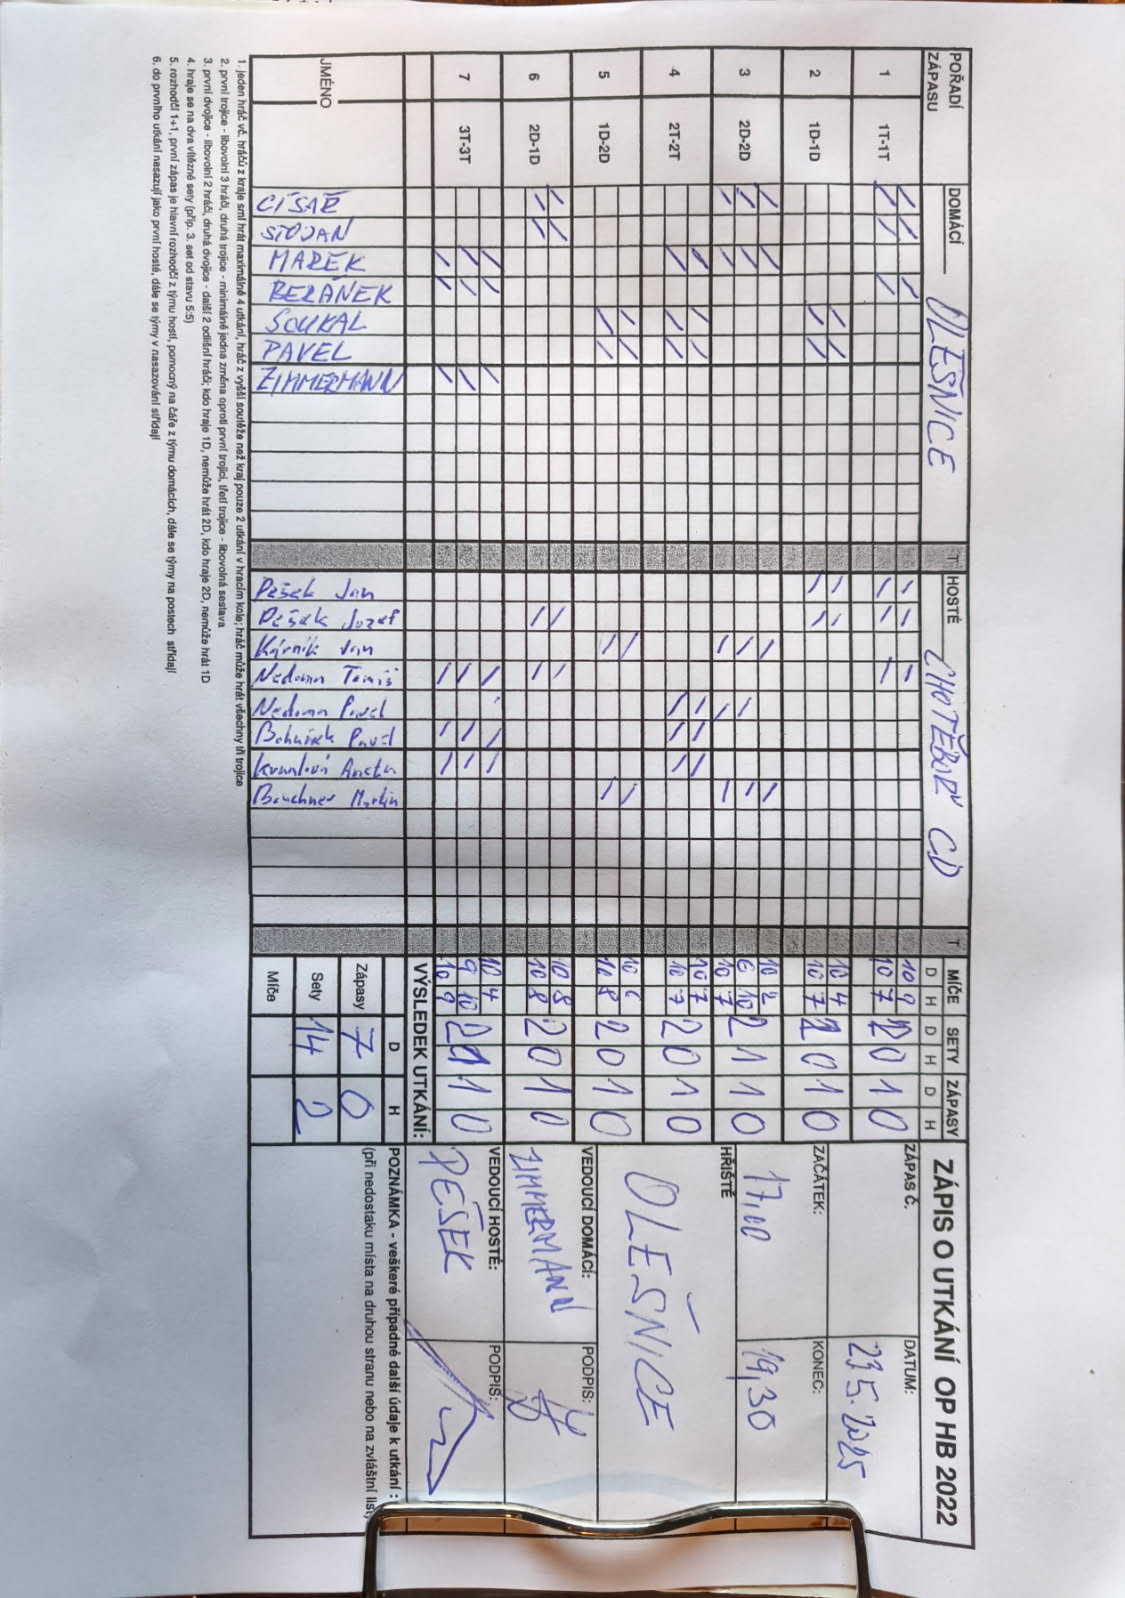 ZÁPIS O UTKÁNÍ OP HB 2022
POŘADÍ ZÁPASU
DOMÁCÍ OLEŠNICE
T
HOSTÉ CHOTĚBOŘ CD
T
MÍČE SETY ZÁPASY
D H D H D H
ZÁPAS Č.
DATUM: 23.5.2025
1 1T-1T
10 9
10 7 2 0 1 0
2 1D-1D
10 4
10 7 2 0 1 0
ZAČÁTEK: 17,00
KONEC: 19,30
3 2D-2D
10 2
6 10
10 7 2 1 1 0
HŘIŠTĚ
OLEŠNICE
4 2T-2T
10 7
10 7 2 0 1 0
5 1D-2D
10 6
10 8 2 0 1 0
VEDOUCÍ DOMÁCÍ: ZIMMERMANN
PODPIS:
6 2D-1D
10 8
10 8 2 0 1 0
VEDOUCÍ HOSTÉ: PEŠEK
PODPIS:
7 3T-3T
10 4
9 10
10 9 2 1 1 0
VÝSLEDEK UTKÁNÍ:
JMÉNO
CÍSAŘ
STOJAN
MAREK
BERÁNEK
SOUKAL
PAVEL
ZIMMERMANN
Pešek Jan
Pešek Jozef
Kárník Jan
Nedoma Tomáš
Nedoma Pavel
Bohuněk Pavel
Aneta
Martin
D H
Zápasy 7 0
Sety 14 2
Míče
POZNÁMKA - veškeré případné další údaje k utkání :
(při nedostaku místa na druhou stranu nebo na zvláštní list,
1. jeden hráč vč. hráčů z kraje smí hrát maximálně 4 utkání, hráč z vyšší soutěže než kraj pouze 2 utkání v hracím kole; hráč může hrát všechny tři trojice
2. první trojice - libovolní 3 hráči, druhá trojice - minimálně jedna změna oproti první trojici, třetí trojice - libovolná sestava
3. první dvojice - libovolní 2 hráči, druhá dvojice - další 2 odlišní hráči; kdo hraje 1D, nemůže hrát 2D, kdo hraje 2D, nemůže hrát 1D
4. hraje se na dva vítězné sety (příp. 3. set od stavu 5:5)
5. rozhodčí 1+1, první zápas je hlavní rozhodčí z týmu hostí, pomocný na čáře z týmu domácích, dále se týmy na postech střídají
6. do prvního utkání nasazují jako první hosté, dále se týmy v nasazování střídají